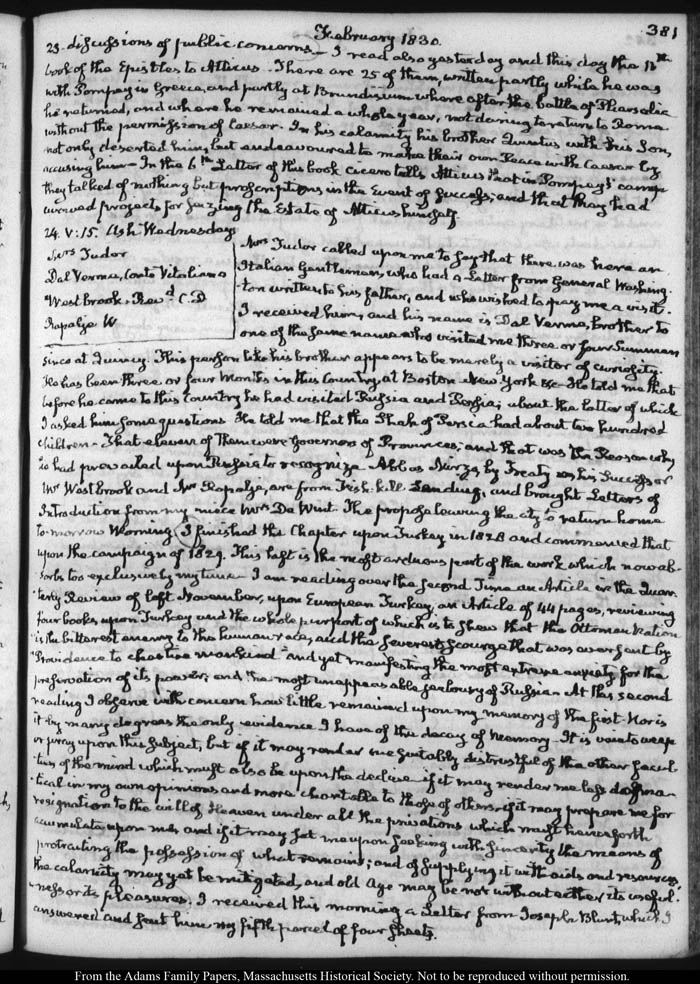 381
February 1830.
23. discussions of public concerns — I read also yesterday and this day the 11th
book of the Epistles to Atticus. There are 25 of them, written partly while he was
with Pompey in Greece, and partly at Brundisium where after the battle of Pharsalia
he returned, and where he remained a whole year, not daring to return to Rome
without the permission of Caesar. In his calamity his brother Quintus with his Son,
not only deserted him, but endeavoured to make their own Peace with Caesar by
accusing him — In the 6th Letter of this book Cicero tells Atticus that in Pompey's camp
they talked of nothing but proscriptions in the Event of success; and that they had
projects for seizing the Estate of Atticus himself.
24. V:15. Ash Wednesday
Mrs Tudor
Dal Verme, Conte Vitaliano
Westbrook, Revd C. D
Rapalje W
Mrs Tudor called upon me to say that there was here an
Italian Gentleman, who had a Letter from General Washing-
ton written to his father, and who wished to pay me a visit.
I received him, and his name is Dal Verme, brother to
one of the same name who visited me three or four Summers
since at Quincy. This person like his brother appears to be merely a visitor of curiosity.
He has been three or four Months in this Country, at Boston New York &c — He told me that
before he came to this Country he had visited Russia and Persia; about the latter of which
I asked him some questions. He told me that the Shah of Persia had about two hundred
children — That eleven of them were Governors of Provinces; and that was the Reason why
he had prevailed upon Russia to recognize Abbas Mirza, by Treaty as his Successor
Mr Westbrook and Mr Rapalje, are from Fish-kill Landing, and brought Letters of
Introduction from my niece Mrs De Wint. They propose leaving the city to return home
to-morrow Morning. I finished the Chapter upon Turkey in 1828 and commenced that
upon the campaign of 1829. This last is the most arduous part of the work which now ab-
sorbs too exclusively my time — I am reading over the second Time an Article in the Quar-
terly Review of last November, upon European Turkey, an Article of 44 pages, reviewing
four books upon Turkey and the whole purport of which is to shew that the Ottoman Nation
"is the bitterest enemy to the human race, and the severest scourge that was ever sent by
"Providence to chastise mankind" and yet manifesting the most extreme anxiety for the
preservation of its power; and the most unappeasable jealousy of Russia — At this second
reading I observe with concern how little remained upon my memory of the first. Nor is
it by many degrees the only evidence I have of the decay of memory — It is vain to weep
or pray upon this subject, but if it may render me suitably distrustful of the other facul-
ties of the mind which must also be upon the decline — if it may render me less dogma-
tical in my own opinions and more charitable to those of others — if it may prepare me for
resignation to the will of Heaven under all the privations which must henceforth
accumulate upon me; and if it may set me upon seeking with sincerity the means of
protracting the possession of what remains; and of supplying it with aids and resources,
the calamity may yet be mitigated, and old Age may be not without either its useful-
ness or its pleasures. I received this morning a Letter from Joseph Blunt, which I
answered and sent him my fifth parcel of four sheets.
From the Adams Family Papers, Massachusetts Historical Society. Not to be reproduced without permission.